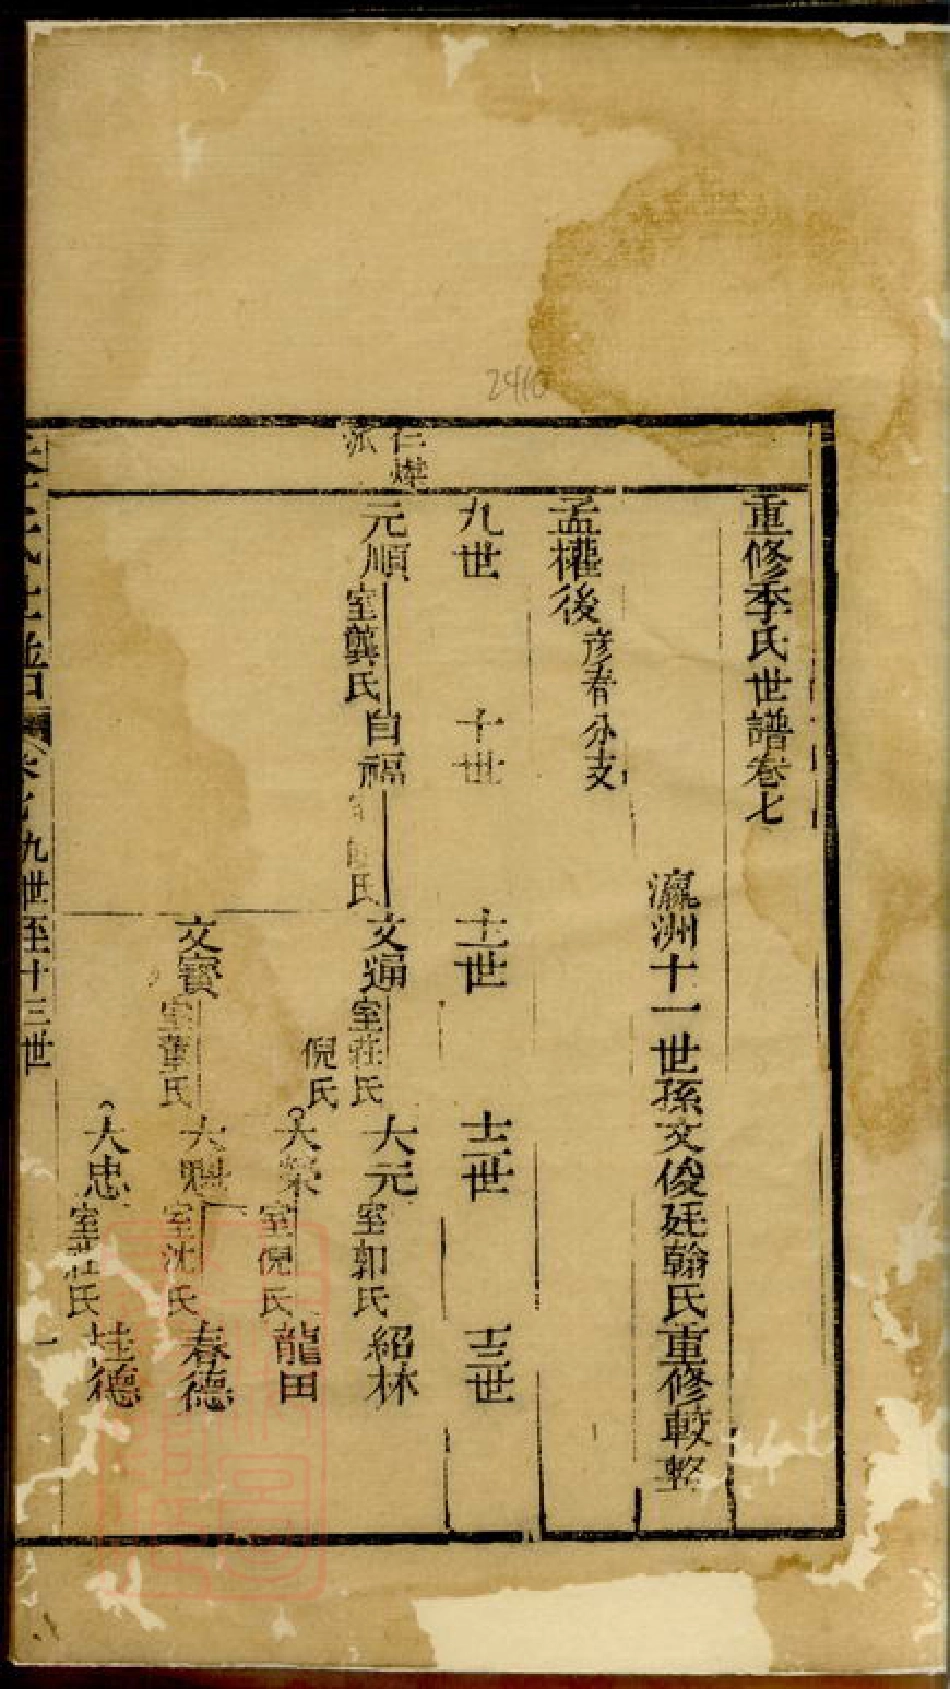 重修季氏世譜卷七
瀛洲十一世孫文俊廷翰氏重修較整
孟權後 彥春分支
九世 十世 十一世 十二世 十三世
元順 室龔氏 自福 文通 室莊氏 倪氏 大元 室郭氏 紹林
大榮 室倪氏 龍田
文寶 室董氏 大魁 室沈氏 春德
大忠 室莊氏 桂德
九世至十三世
一
2410